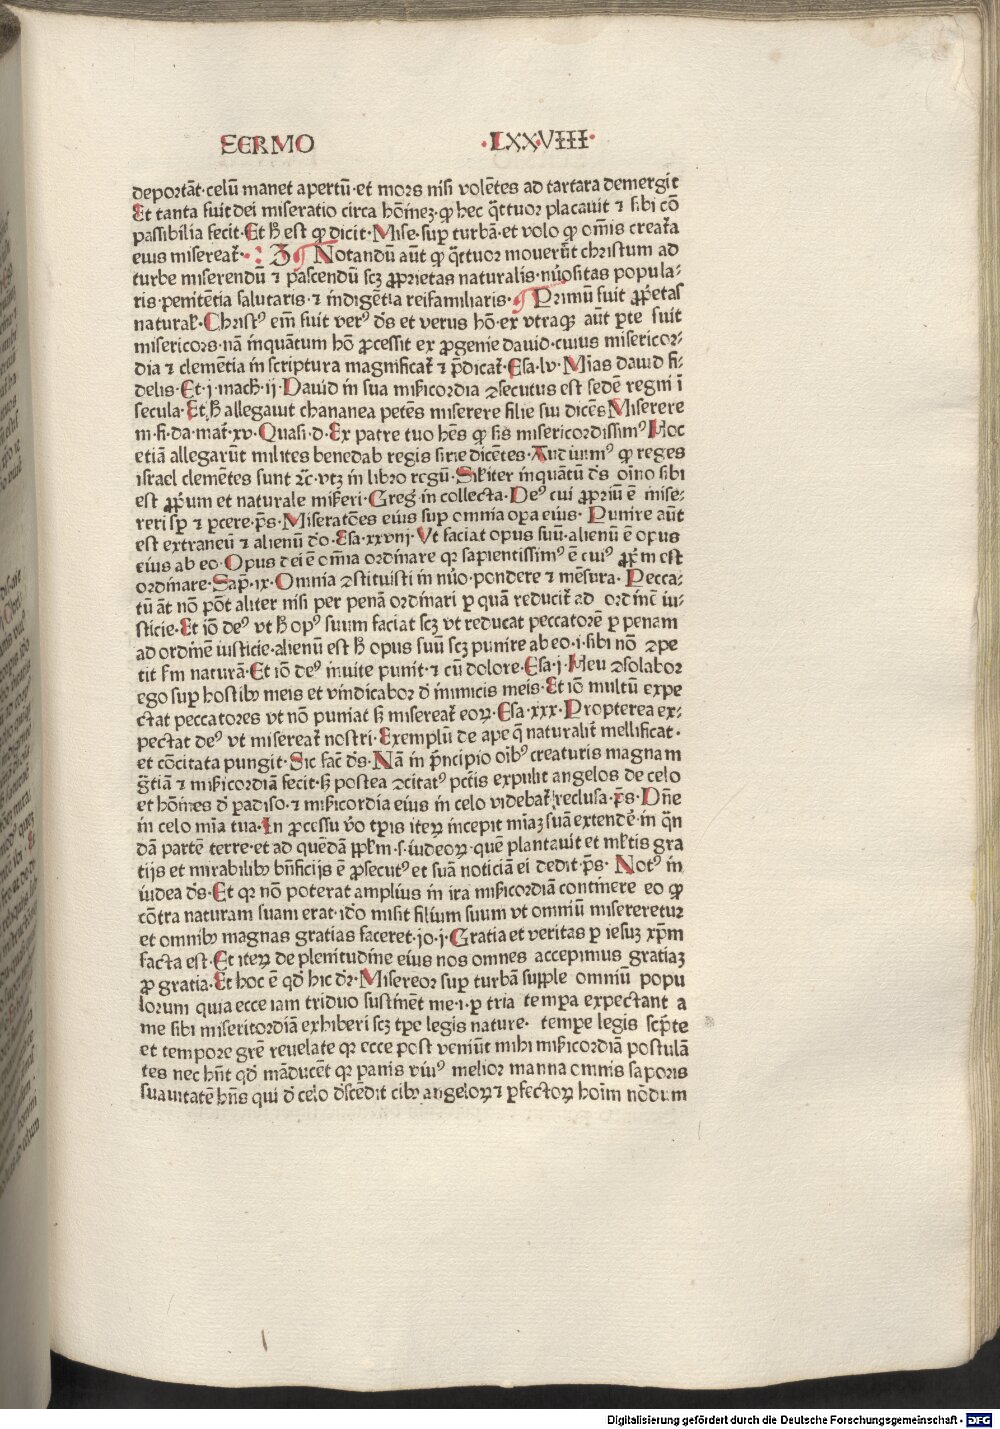 SERMO ·LXXVIII·
deportāt·celū manet apertū·et mors nisi volētes ad tartara demergit
Et tanta fuit dei miseratio circa hōīnez·ꝙ hec q̄ttuor placauit ⁊ sibi cō
passibilia fecit·Et ħ est ꝙ dicit·Mise·suꝑ turbā·et volo ꝙ om̄is creat̄a
eius misereat̄· Notandū aūt ꝙ q̄ttuor mouerūt christum ad
turbe miserendū ⁊ pascendū scꝫ ꝓprietas naturalis·nūositas popula⸗
ris·penitētia salutaris·⁊ indigētia rei familiaris· Primū fuit ꝓp̄etas
natural̄·Christꝰ em̄ fuit verꝰ d̄s et verus hō·ex vtraqꝫ aūt ꝑte fuit
misericors·nā inquātum hō ꝓcessit ex ꝓgenie dauid·cuius misericor⸗
dia ⁊ clemētia in scriptura magnificat̄ ⁊ p̄dicat̄·Esa·lv·Mīas dauid fi⸗
delis·Et·j·mach·ij·Dauid in sua mīicordia ꝯsecutus est sedē regni ī
secula·Et ħ allegauit chananea petēs miserere filie sui dicēs Miserere
m·fi·da·mat̄·xv·Quasi·d·Ex patre tuo hēs ꝙ sis misericordissimꝰ Hoc
etiā allegarūt milites benedab regis sirie dicētes·Audiuimꝰ ꝙ reges
israel clemētes sunt ⁊c̄·vtꝫ in libro regū·Sil̄iter inquātū d̄s oīno sibi
est ꝓpum et naturale mis̄eri·Greg̉ in collecta·Deꝰ cui ꝓpriū ē mise⸗
reri sꝑ ⁊ ꝑcere·p̄s·Miseratōes eius suꝑ omnia oꝑa eius· Punire aūt
est extraneū ⁊ alienū d̄o·Esa·xxvnj·Vt faciat opus suū·alienū ē opus
eius ab eo·Opus dei ē om̄ia ordinare qꝛ sapientissimꝰ ē cuiꝰ ꝓp̄m est
ordinare·Sap̄·ix·Omnia ꝯstituisti in nūo·pondere ⁊ mēsura·Pecca⸗
tū āt nō pōt aliter nisi per penā ordinari ꝑ quā reducit̄ ad ordinē iu⸗
sticie·Et iō deꝰ vt ħ opꝰ suum faciat scꝫ vt reducat peccatorē ꝑ penam
ad ordinē iusticie·alienū est ħ opus suū scꝫ punire ab eo·i·sibi nō ꝯpe
tit s̄m naturā·Et iō deꝰ inuite punit·⁊ cū dolore·Esa·j·Heu ꝯsolabor
ego suꝑ hostibꝫ meis et vindicabor d̄ inimicis meis·Et iō multū expe
ctat peccatores vt nō puniat sꝫ misereat̄ eoꝝ·Esa·xxx·Propterea ex⸗
pectat deꝰ vt misereat̄ nostri·Exemplū de ape q̄ naturalit̄ mellificat·
et cōcitata pungit·Sic fac̄ d̄s·Nā in p̄ncipio oībꝰ creaturis magnam
ḡtiā ⁊ mīicordiā fecit·sꝫ postea ꝯcitatꝰ pctīs expulit angelos de celo
et hōīnes d̄ padiso·⁊ mīicordia eius in celo videbat̄ reclusa·p̄s·Dn̄e
in celo mīa tua·In ꝓcessu v̄o tꝑis iteꝝ incepit mīaꝫ suā extendē·in q̄n
dā partē terre·et ad quēdā ꝑpl̄m·s·iudeoꝝ·quē plantauit et ml̄tis gra
tijs et mirabilibꝫ bn̄ficijs ē ꝓsecutꝰ et suā noticiā ei dedit·p̄s· Notꝰ in
iudea d̄s·Et qꝛ nō poterat amplius in ira mīicordiā continere eo ꝙ
cōtra naturam suam erat·id̄o misit filium suum vt omniū misereretur
et omnibꝫ magnas gratias faceret·jo·j·Gratia et veritas ꝑ iesuꝫ xp̄m
facta est·Et iteꝝ de plenitudine eius nos omnes accepimus gratiaꝫ
ꝓ gratia·Et hoc ē qd̄ hic d̄r·Misereor suꝑ turbā supple omniū popu
lorum quia ecce iam triduo sustinēt me·i·ꝑ tria tempa expectant a
me sibi misericordiā exhiberi scꝫ tꝑe legis nature· tempe legis scp̄te
et tempore grē reuelate qꝛ ecce post veniūt mihi mīicordiā postulā
tes nec hn̄t qd̄ māducēt qꝛ panis viuꝰ melior manna omnis saporis
suauitatē hn̄s qui d̄ celo d̄scēdit cibꝫ angeloꝝ ⁊ ꝑfectoꝝ hoīm nōdum
Digitalisierung gefördert durch die Deutsche Forschungsgemeinschaft · DFG